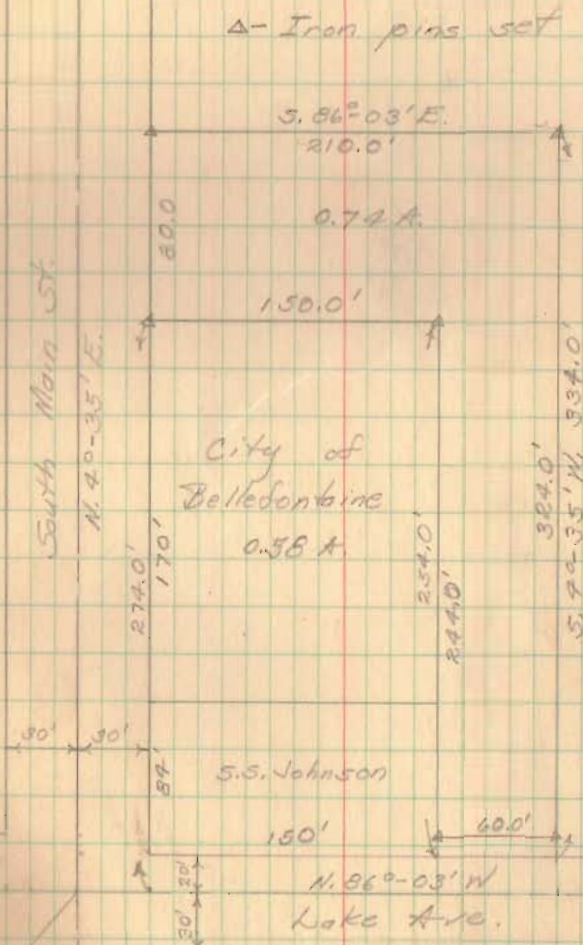 Δ- Iron pins set
S. 86°-03' E.
210.0'
0.74 A.
80.0
150.0'
South Main St.
N. 4°-35' E.
City of
Bellefontaine
0.58 A.
274.0'
170'
254.0'
244.0'
324.0'
S. 4°-35' W. 334.0'
30'
30'
84'
S.S. Johnson
150'
60.0'
20'
30'
N. 86°-03' W
Lake Ave.